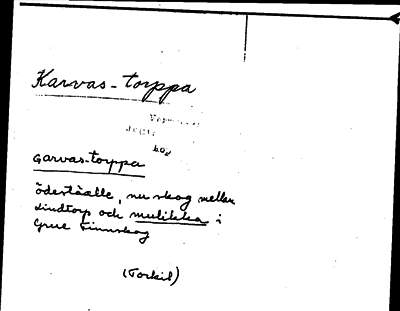 Karvas-torppa
Garvas-torppa
ödeställe, nu skog mellan
Lindtorp och Mulikka i
Grue Finnskog
(Torkil)